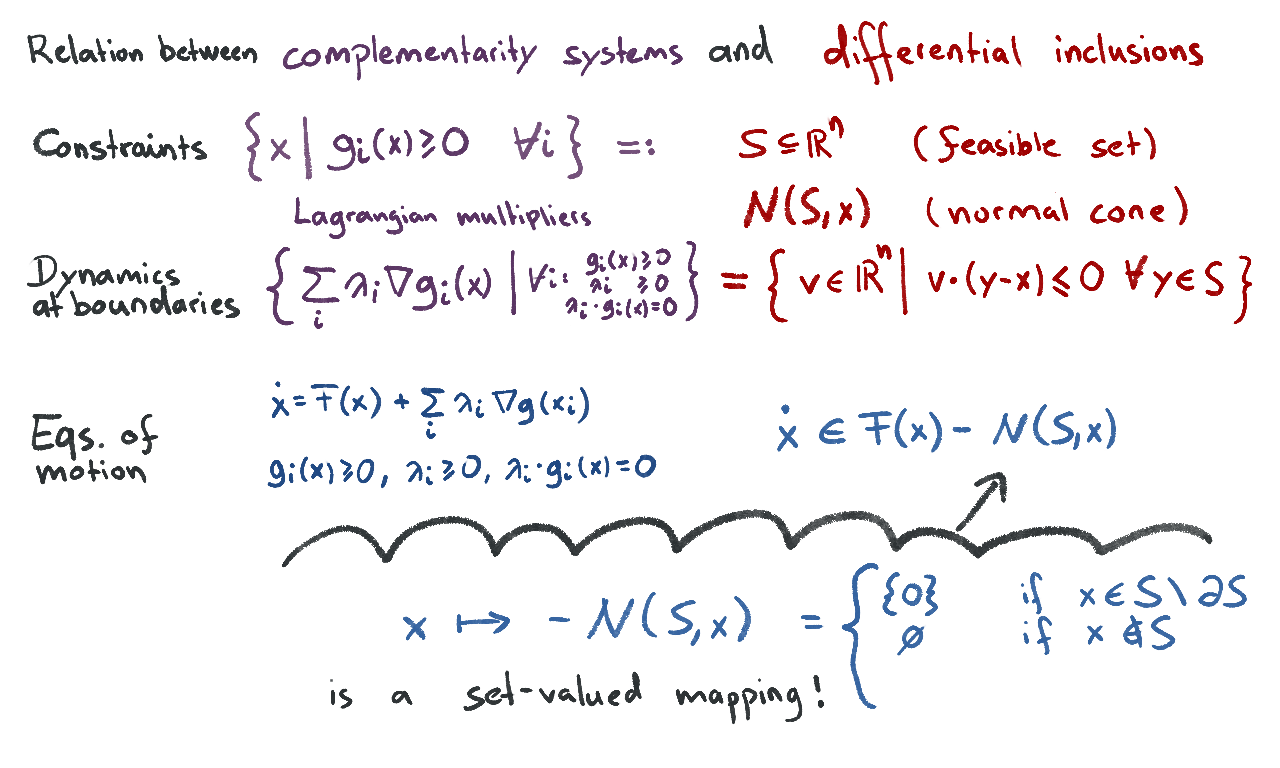 Relation between complementarity systems and differential inclusions
Constraints {x | gᵢ(x)⩾0 ∀i} =: S ⊆ ℝⁿ (feasible set)
Lagrangian multipliers N(S,x) (normal cone)
Dynamics at boundaries { ∑ᵢ λᵢ∇gᵢ(x) | ∀i: gᵢ(x)⩾0 λᵢ ⩾0 λᵢ·gᵢ(x)=0 } = { v∈ℝⁿ | v·(y-x)⩽0 ∀y∈S }
Eqs. of motion
ẋ = F(x) + ∑ᵢ λᵢ ∇g(xᵢ)
gᵢ(x)⩾0, λᵢ⩾0, λᵢ·gᵢ(x)=0
ẋ ∈ F(x) - N(S,x)
x ↦ -N(S,x) = { {0} if x∈S\∂S
∅ if x∉S
is a set-valued mapping!